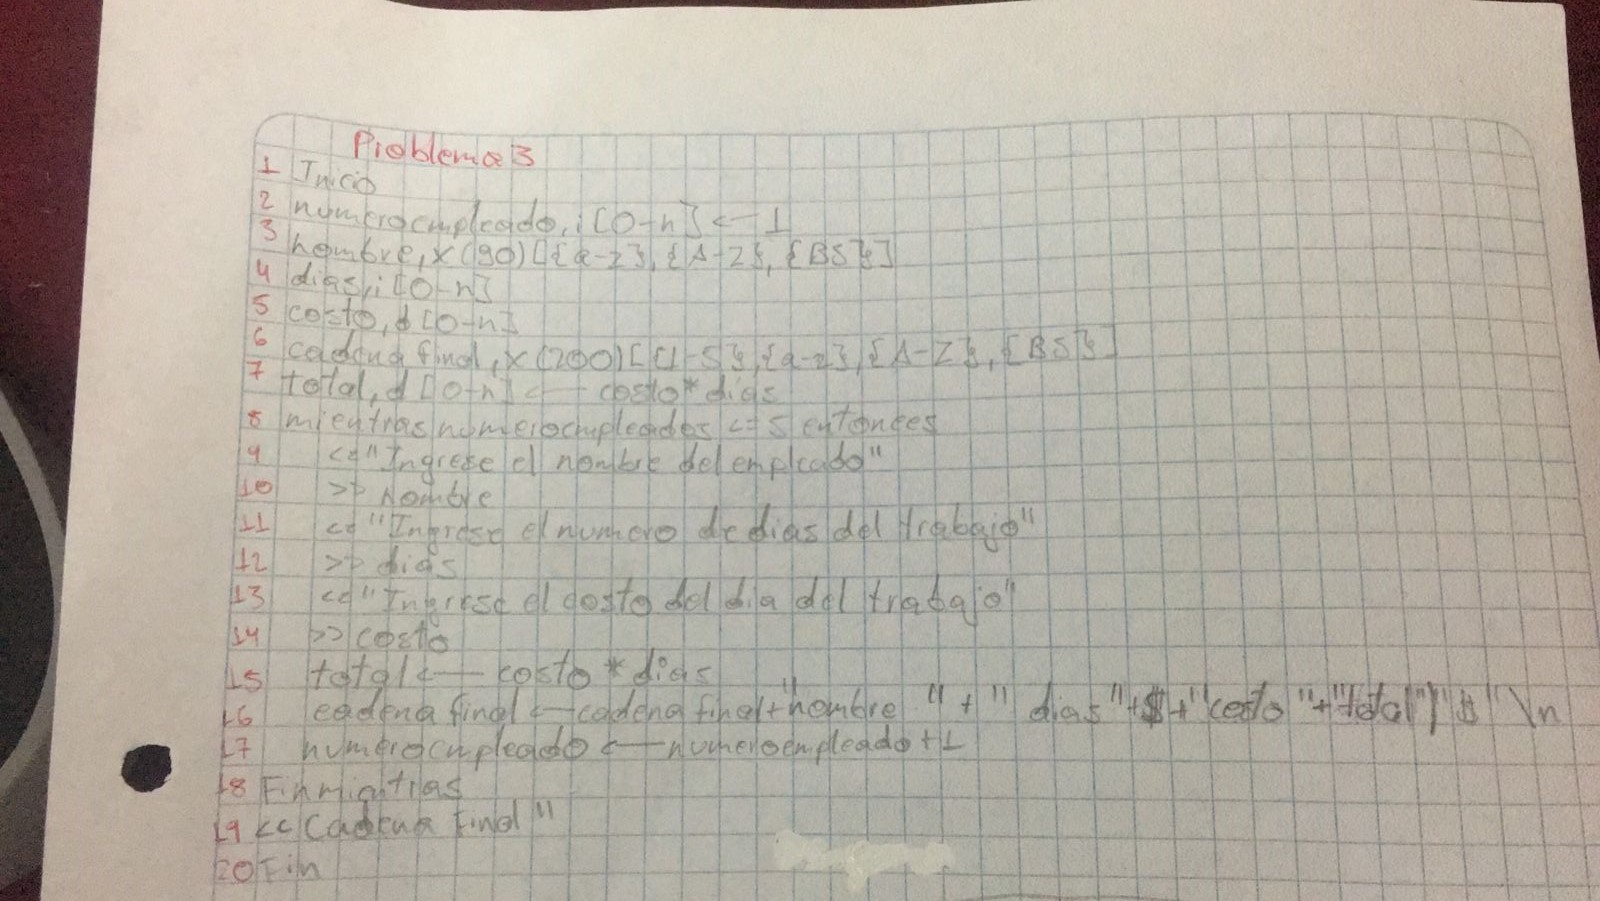 Problema 3
1 Inicio
2 numeroempleado, i [0-n] <— 1
3 nombre, x (90) [{a-z}, {A-Z}, {BS}]
4 dias, i [0-n]
5 costo, d [0-n]
6 cadena final, x (200) [{1-5}, {a-z}, {A-Z}, {BS}]
7 total, d [0-n] <— costo * dias
8 mientras numeroempleados <= 5 entonces
9 << "Ingrese el nombre del empleado"
10 >> Nombre
11 << "Ingrese el numero de dias del trabajo"
12 >> dias
13 << "Ingrese el costo del dia del trabajo"
14 >> costo
15 total <— costo * dias
16 cadena final <— cadena final + "nombre " + " dias " + $ + " costo " + "total") $ " \n
17 numeroempleado <— numeroempleado + 1
18 Finmientras
19 << Cadena Final "
20 Fin